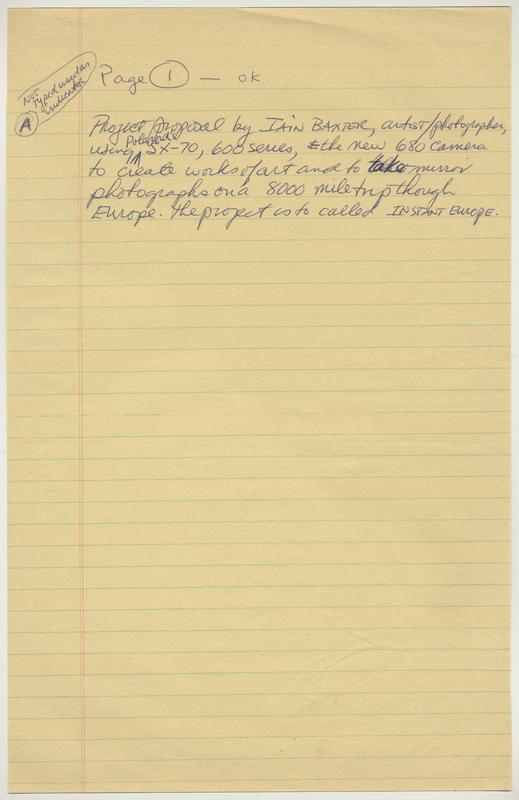 NOT
typed used as
indicator
A
Page 1 — OK
Project Proposal by IAIN BAXTER, artist/photographer,
Polaroids
using SX-70, 600 series, & the new 680 camera
to create works of art and to take mirror
photographs on a 8000 mile trip though
Europe. The project is to called INSTANT EUROPE.